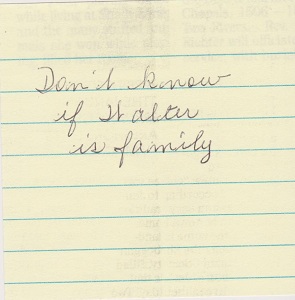 Don't know
if Walter
is family